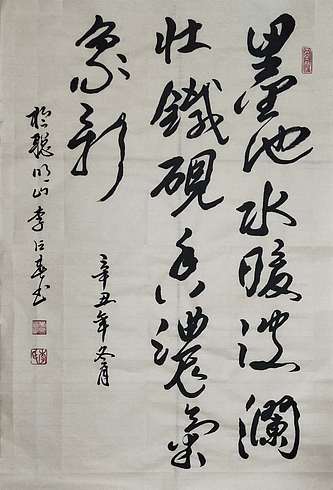 墨池水暖波澜
壮铁砚香浓气
象新
辛丑年冬月
于聪明山李巨春书